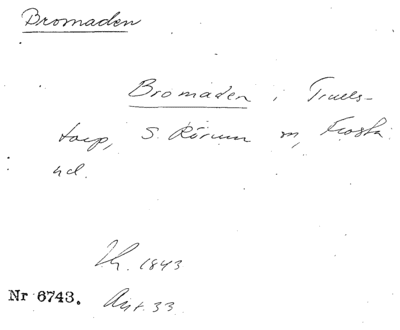 Bromaden
Bromaden i Truels-
torp, S. Rörum sn, Frosta
hd.
Lh. 1843
Nr 6743. Ant. 33